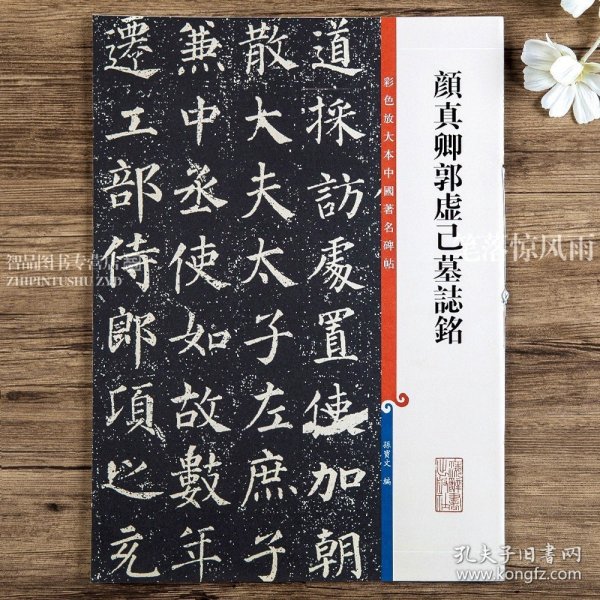 顔真卿郭虚己墓誌銘
彩色放大本中國著名碑帖
孫寶文 編
道採訪處置使加朝
散大夫太子左庶子
兼中丞使如故數年
遷工部侍郎項之充
笔落惊风雨
智品图书专营店
ZHIPINTUSHUZYD
孔夫子旧书网
www.kongfz.com